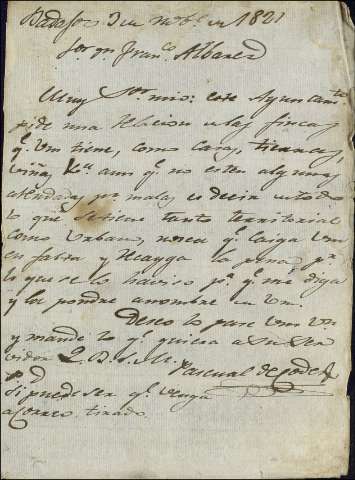 Badajoz 3 de Nobe. de 1821
Sor. Dn. Franco. Albarez
Muy Sor. mio: este Ayuntamto.
pide una Relacion de las fincas
qe. Vm tiene, como Casa, tierras,
viña, &a. aun qe. no esten algunas
por malas, es decir de todo
lo que se tiene tanto territorial
como Urbano, no sea qe. Caiga Vm
en falta y la pena, pr.
lo que se lo haviso pa. qe. me diga
y la pondre anombre de Vm.
Deseo lo pase Vm
y mande lo qe. quiera a su Ser
vidor Q. B. S. M.
Pascual de
P D
Si puede ser qe. venga
a Correo tirado